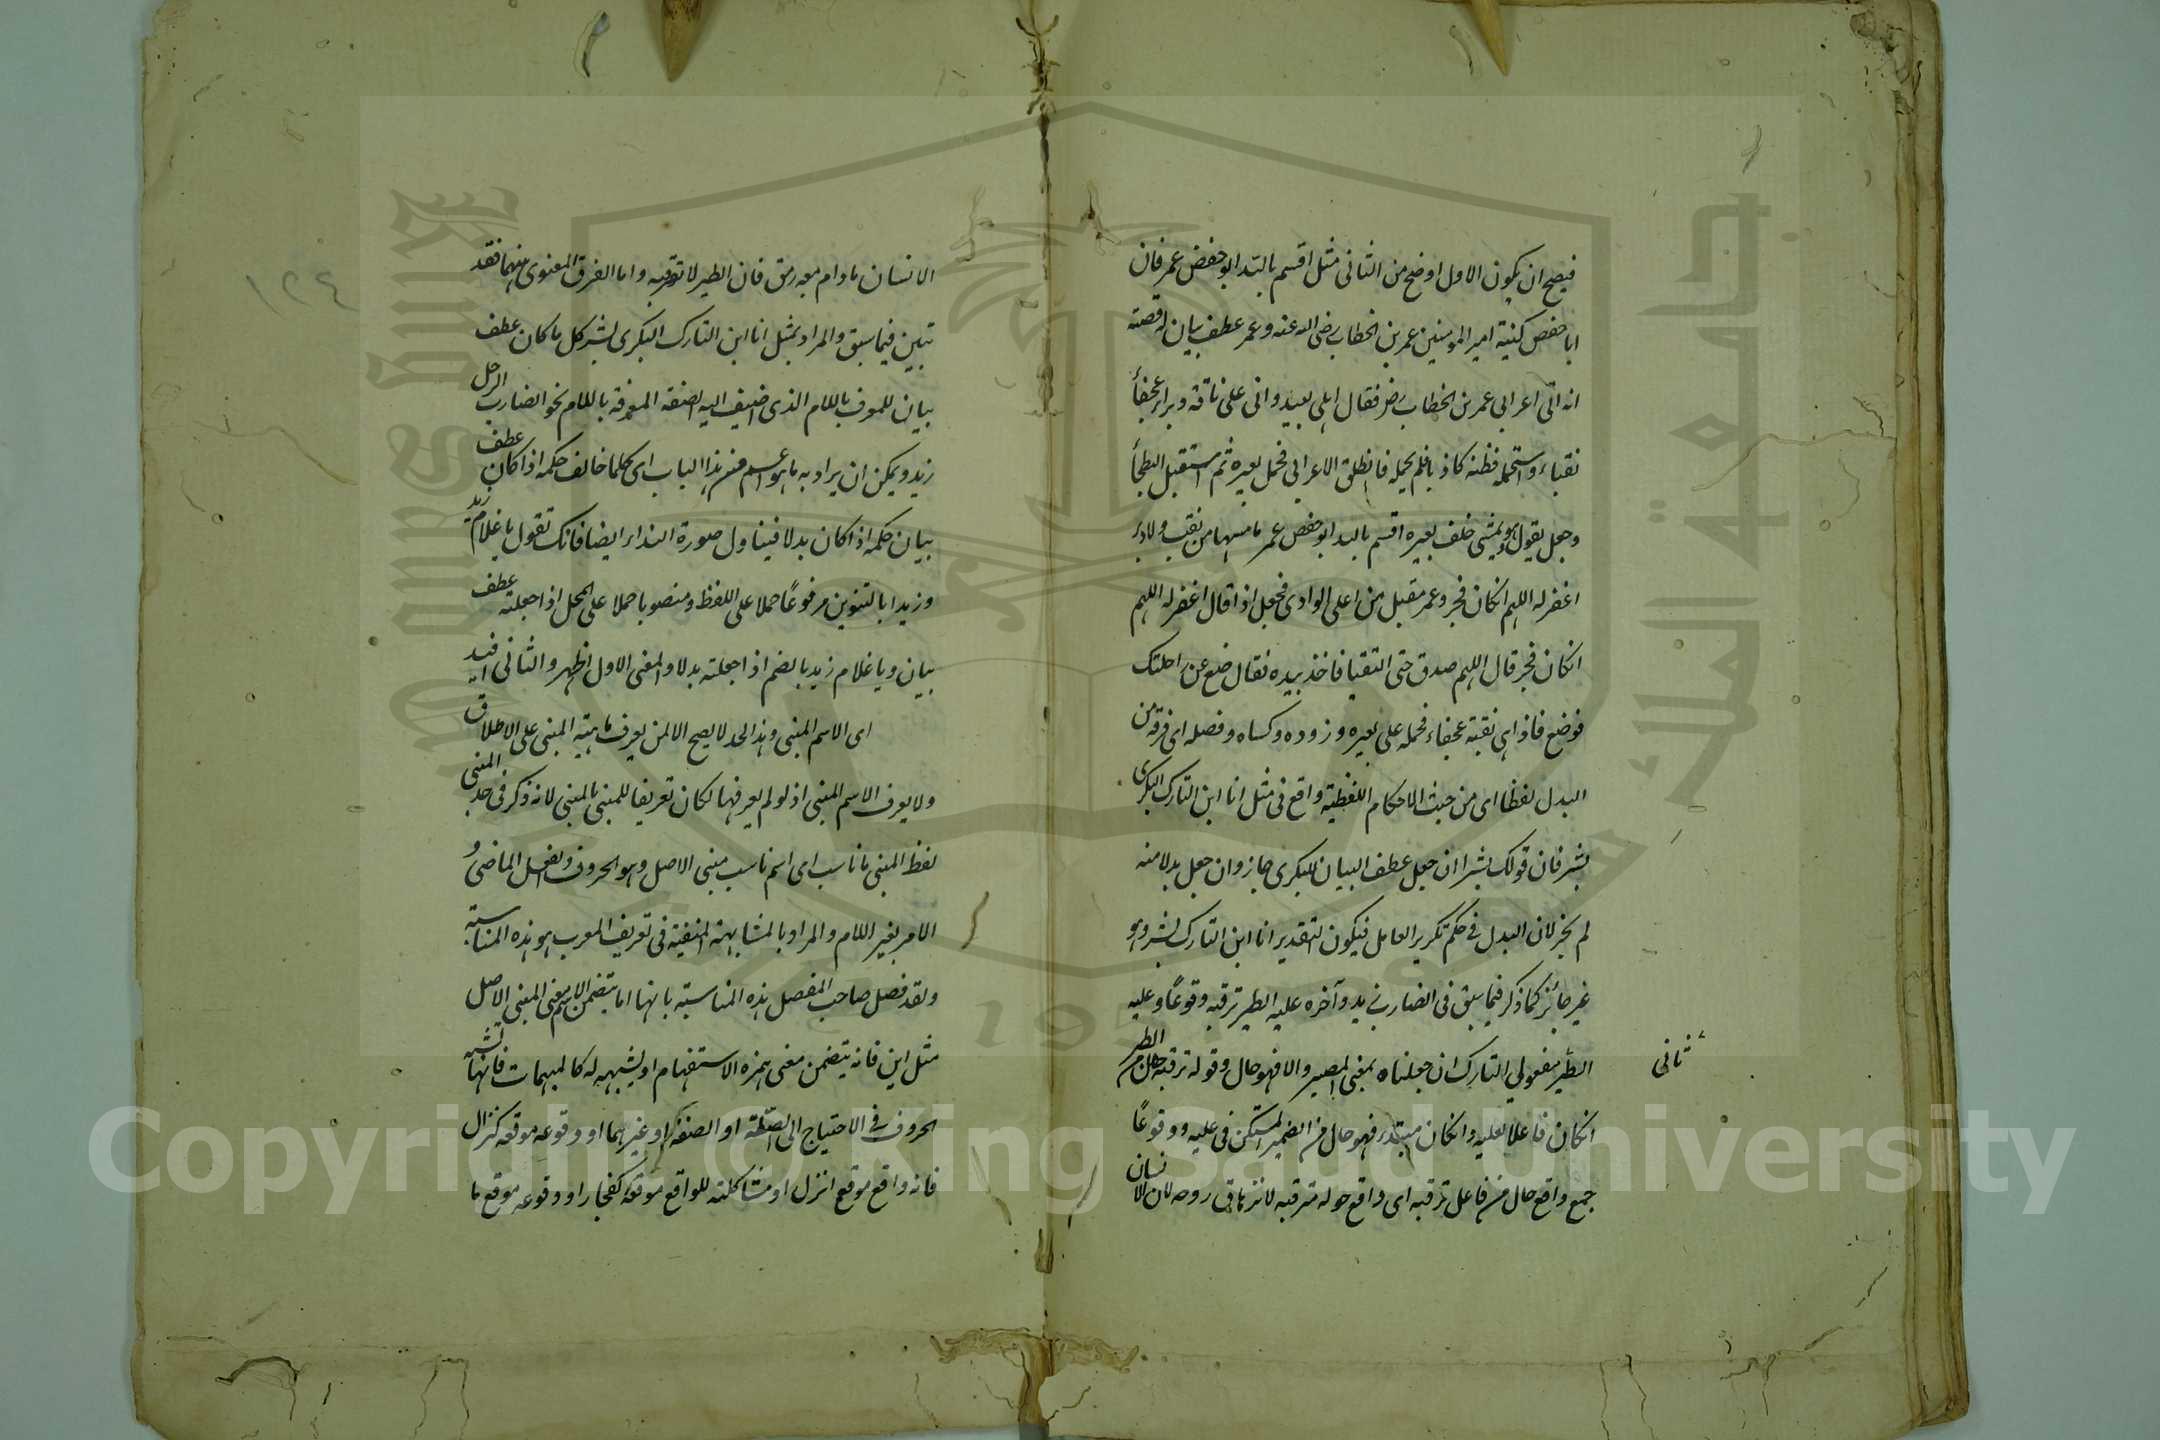 فيصح ان يكون الاول اوضح من الثانى مثل اقسم بالله ابو حفص عمر فان
ابا حفص كنية امير المومنين عمر بن الخطاب رضى الله عنه وعمر عطف بيان له قصته
انه اتى اعرابى عمر بن الخطاب رض فقال اهلى بعيد وانى على ناقة دبراء عجفأ
نقباء واستحمله فظنه كاذبا فلم يحمله فانطلق الاعرابى فحمل بعيره ثم استقبل البطحأ
وجعل يقول وهو يمشى خلف بعيره اقسم بالله ابو حفص عمر ما مسها من نقب ولا دبر
اغفر له اللهم انكان فجر وعمر مقبل من اعلى الوادى فجعل اذا قال اغفر له اللهم
انكان فجر قال اللهم صدق حتى التقيا فاخذ بيده فقال ضع عن راحلتك
فوضع فاذا هى نقبة عجفاء فحمله على بعيره وزوده وكساه وفصله اى فرقه من
البدل لفظا اى من حيث الاحكام اللفظية واقع فى مثل انا ابن التارك البكرى
بشر فان قولك بشر ان جعل عطف البيان للبكرى جاز وان جعل بدلا منه
لم يجز لان البدل فى حكم تكرير العامل فيكون التقدير انا ابن التارك بشر وهو
غير جائز كما ذكر فيما سبق فى الضارب زيد وآخره عليه الطير ترقبه وقوعًا وعليه
الطير مفعولى التارك ان جعلناه بمعنى المصير والا فهو حال وقوله ترقبه حال من الطير
ثانى
انكان فاعلا لعليه وانكان مبتدء فهو حال من الضمير المستكن فى عليه ووقوعًا
جمع واقع حال من فاعل ترقبه اى واقع حوله مترقبه لانزهاق روحه لان الانسان
١٢٤
الانسان ما دام به رمق فان الطير لا ترقبه واما الفرق المعنوى بينهما فقد
تبين فيما سبق والمراد بمثل انا ابن التارك البكرى بشر كل ما كان عطف
بيان للمعرف باللام الذى اضيف اليه الصفة المعرفة باللام نحو الضارب الرجل
زيد ويمكن ان يراد به ما هو اعم من هذا الباب اى كلما خالف حكمه اذا كان عطف
بيان حكمه اذا كان بدلا فيتناول صورة النداء ايضا فانك تقول يا غلام زيد
وزيدا بالتنوين مرفوعًا حملا على اللفظ ومنصوبا حملا على المحل اذا جعلته عطف
بيان ويا غلام زيد بالضم اذا جعلته بدلا والمعنى الاول اظهر والثانى افيد
اى الاسم المبنى وهذا الحد لا يصح الا لمن يعرف ماهية المبنى على الاطلاق
ولا يعرف الاسم المبنى اذ لو لم يعرفها لكان تعريفا للمبنى بالمبنى لانه ذكر فى حد المبنى
لفظ المبنى ما ناسب اى اسم ناسب مبنى الاصل وهو الحروف والفعل الماضى و
الامر بغير اللام والمراد بالمشابهة المنفية فى تعريف المعرب هو هذه المناسبة
ولقد فصل صاحب المفصل هذه المناسبة بانها اما يتضمن الاسم معنى المبنى الاصل
مثل اين فانه يتضمن معنى همزة الاستفهام او يشبهه له كالمبهمات فانها تشبه
الحروف فى الاحتياج الى الصلة او الصفة او غيرهما او وقوعه موقعه كنزال
فانه واقع موقع انزل او مشاكلته للواقع موقعه كفجار او وقوعه موقع ما
Copyright © King Saud University